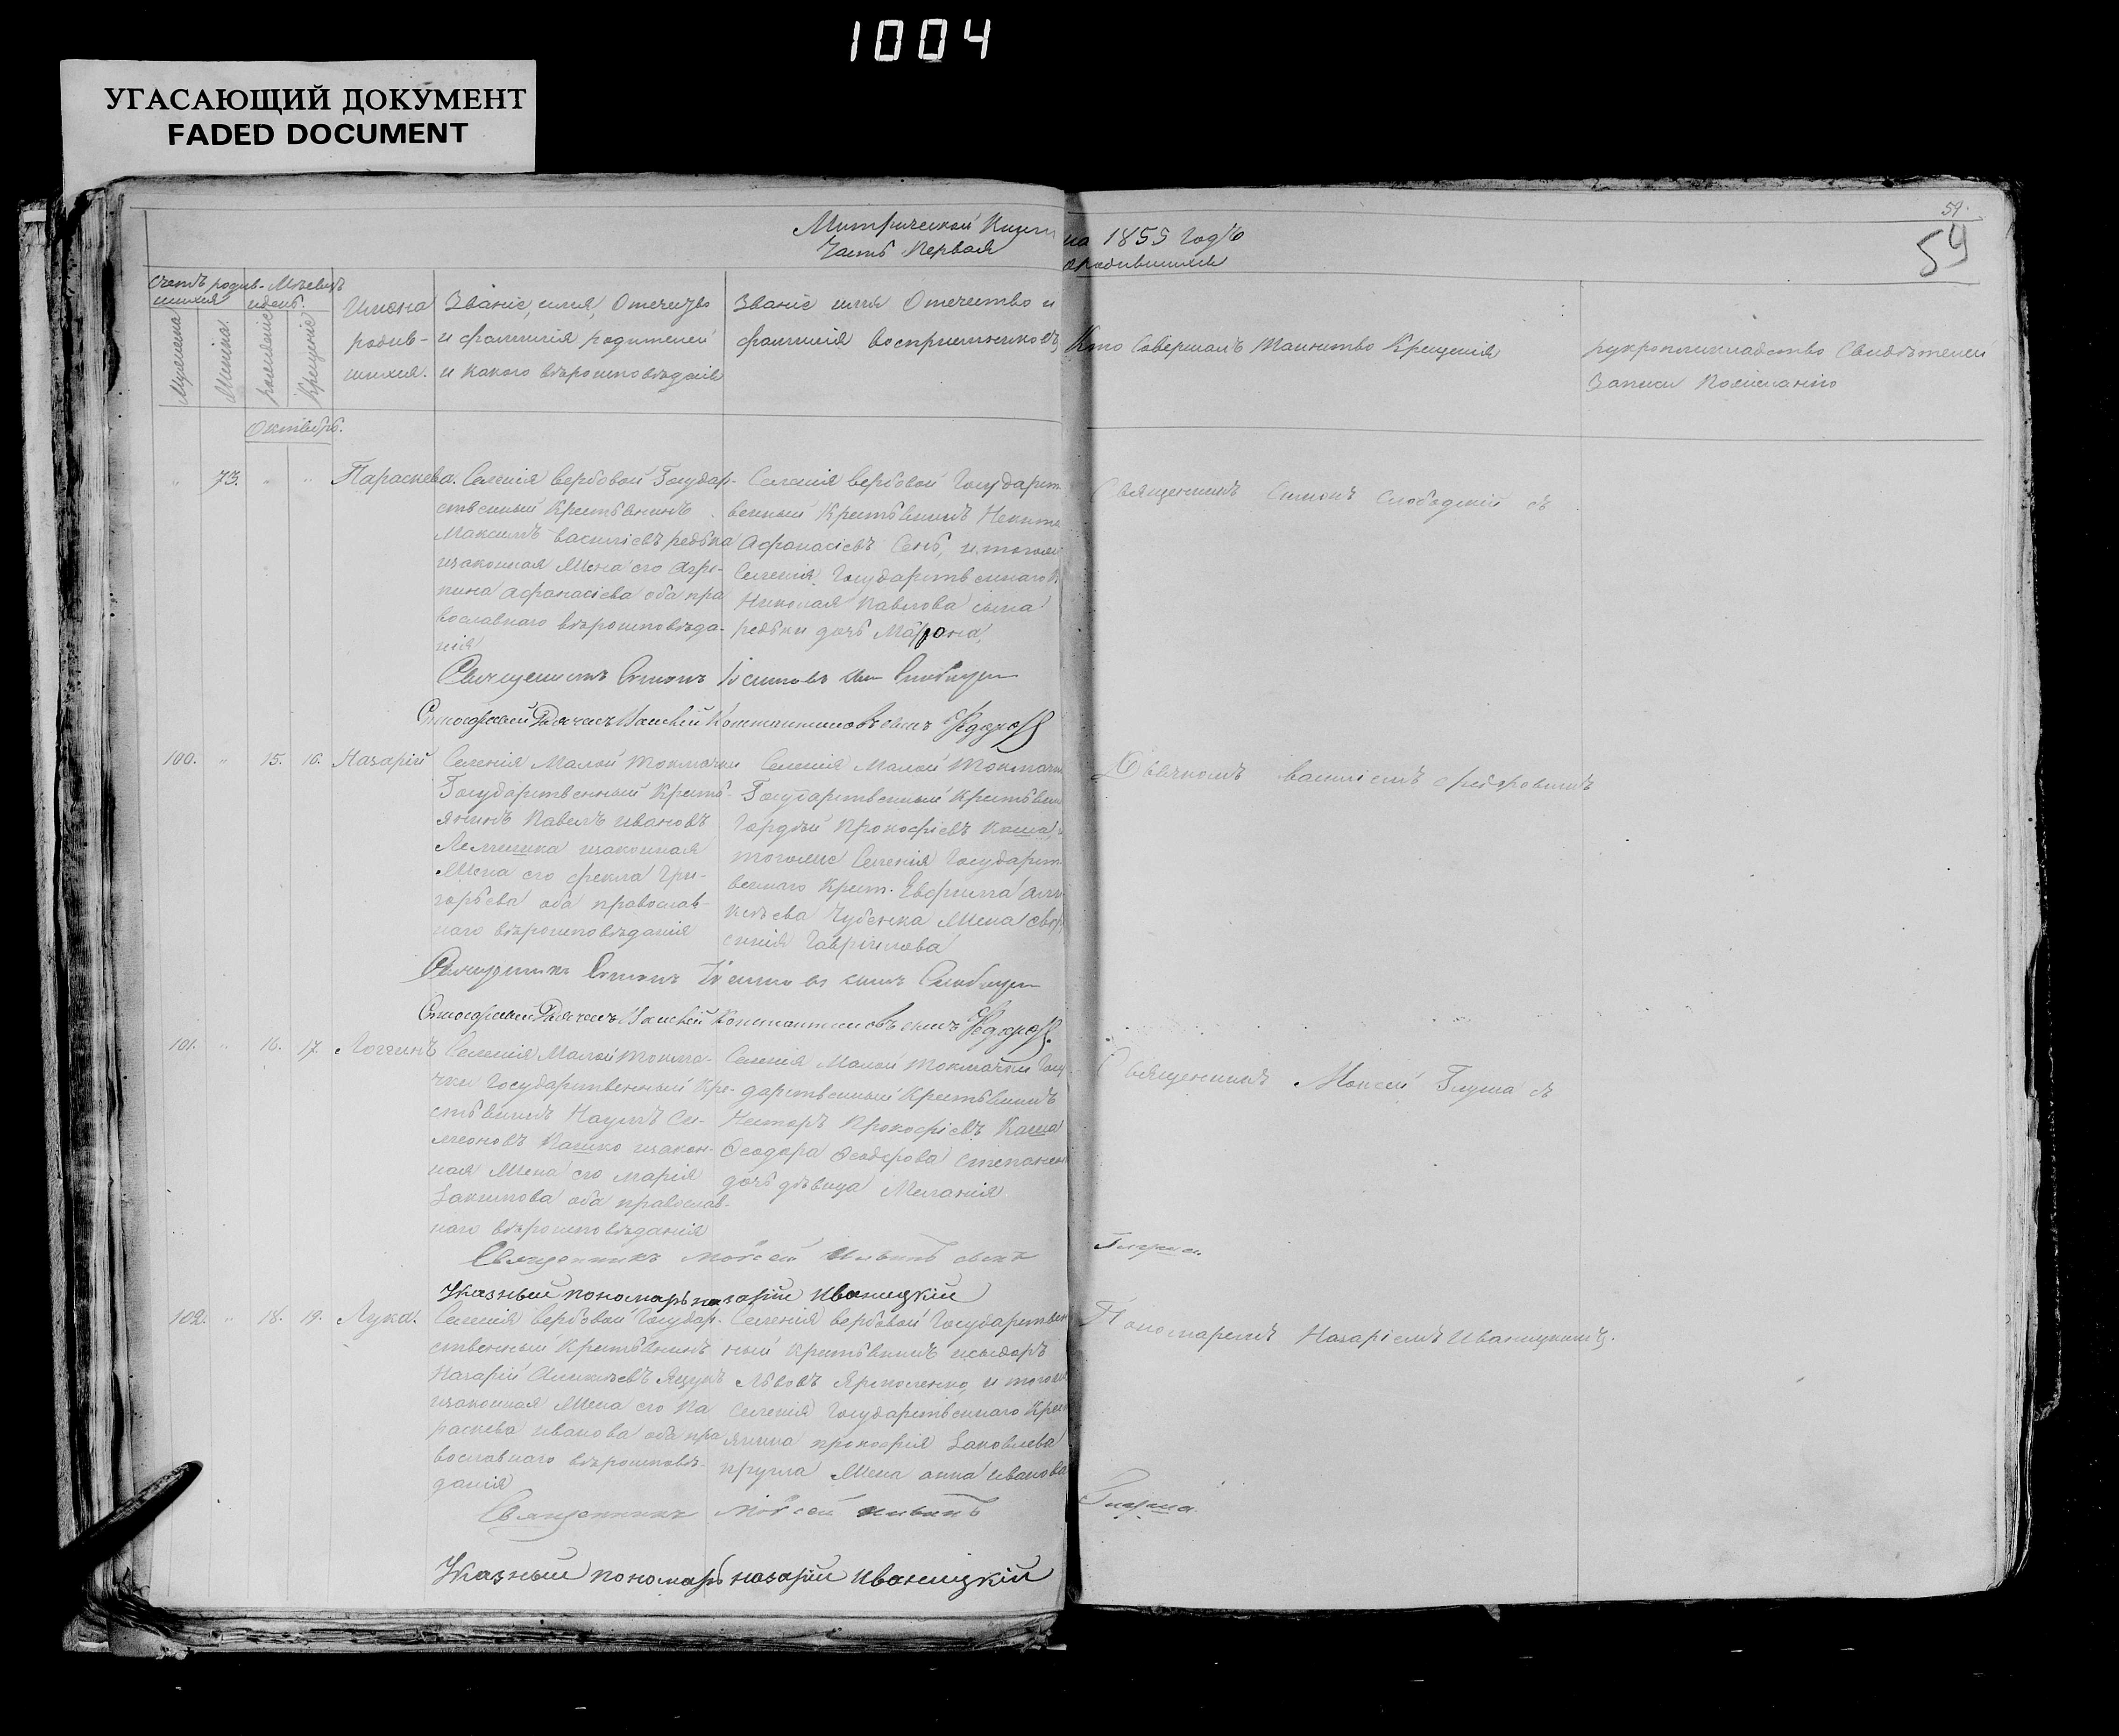 1004
УГАСАЮЩИЙ ДОКУМЕНТ
FADED DOCUMENT
59.
59
Метрической Книги на 1855 Годъ
Часть Первая о родившихся
Счетъ родив-
шихся
Мѣсяцъ
и день.
Мужеска
Женска.
рожденіе
Крещеніе
Имена
родив-
шихся.
Званіе, имя, Отечество
и фамилія родителей
и какого вѣроисповѣданія
Званіе имя Отечество и
фамилія воспріемниковъ
Кто Совершалъ Таинство Крещенія
рукоприкладство Свидѣтелей
Записи по желанію
Октябрь.
" 73. " "
Параскева.
Селенія вербовой Государ-
ственный Крестьянинъ
Максимъ василіевъ редька
изаконная Жена его Агри-
пина Афанасіева оба пра
вославнаго вѣроисповѣда-
нія
Селенія вербовой Государст
венный Крестьянинъ Никита
Афанасіевъ Сень, и тогоже
Селенія Государственнаго К
Николая Павлова сына
редьки дочь Матрона,
Священникъ Симонъ Слободскій съ
Священникъ Симонъ
Дьячекъ Василій Константиновъ сынъ Федоров
100. " 15. 16.
Назарій
Селенія Малой Токмачки
Государственный Кресть-
янинъ Павелъ Ивановъ
изаконная
Жена его фекла Гри-
горьева оба православ-
наго вѣроисповѣданія
Селенія Малой Токмачки
Государственный Крестьянин
Гордѣй Прокофіевъ Каша, и
тогоже Селенія Государст
веннаго Крест. Евфима
Чубенка Жена Евфро
синія Гавріилова
Дьячкомъ василіемъ Федоровымъ
Священникъ Симонъ
Дьячекъ Василій Константиновъ сынъ Федоров.
101. " 16. 17.
Логгинъ
Селенія Малой Токма-
чки Государственный Кре-
стьянинъ Наумъ Си-
меоновъ Пашко изакон-
ная Жена его Марія
Іакимова оба православ-
наго вѣроисповѣданія
Селенія Малой Токмачки Госу
дарственный Крестьянинъ
Несторъ Прокофіевъ Каша
Ѳеодора Ѳеодорова Степанен
дочь дѣвица Меланія
Священникъ Моисей Глуша съ
Священникъ Моѵсей Ильинъ сынъ Глуша.
Указный пономарь назарій Иваницкій
102. " 18. 19.
Лука.
Селенія вербовой Государ-
ственный Крестьянинъ
Назарій Алексѣевъ Яцунъ
изаконная Жена его Па
раскева иванова оба пра
вославнаго вѣроисповѣ-
данія
Селенія вербовой Государствен
ный Крестьянинъ исидоръ
Львовъ Ярмоленко, и тогоже
Селенія Государственнаго Крест
янина прокофія Іаковлева
кругла Жена анна иванова
Пономаремъ Назаріемъ Иваницкимъ.
Священникъ Моѵсей Ильинъ Глуша.
Указный пономарь назарій Иваницкій